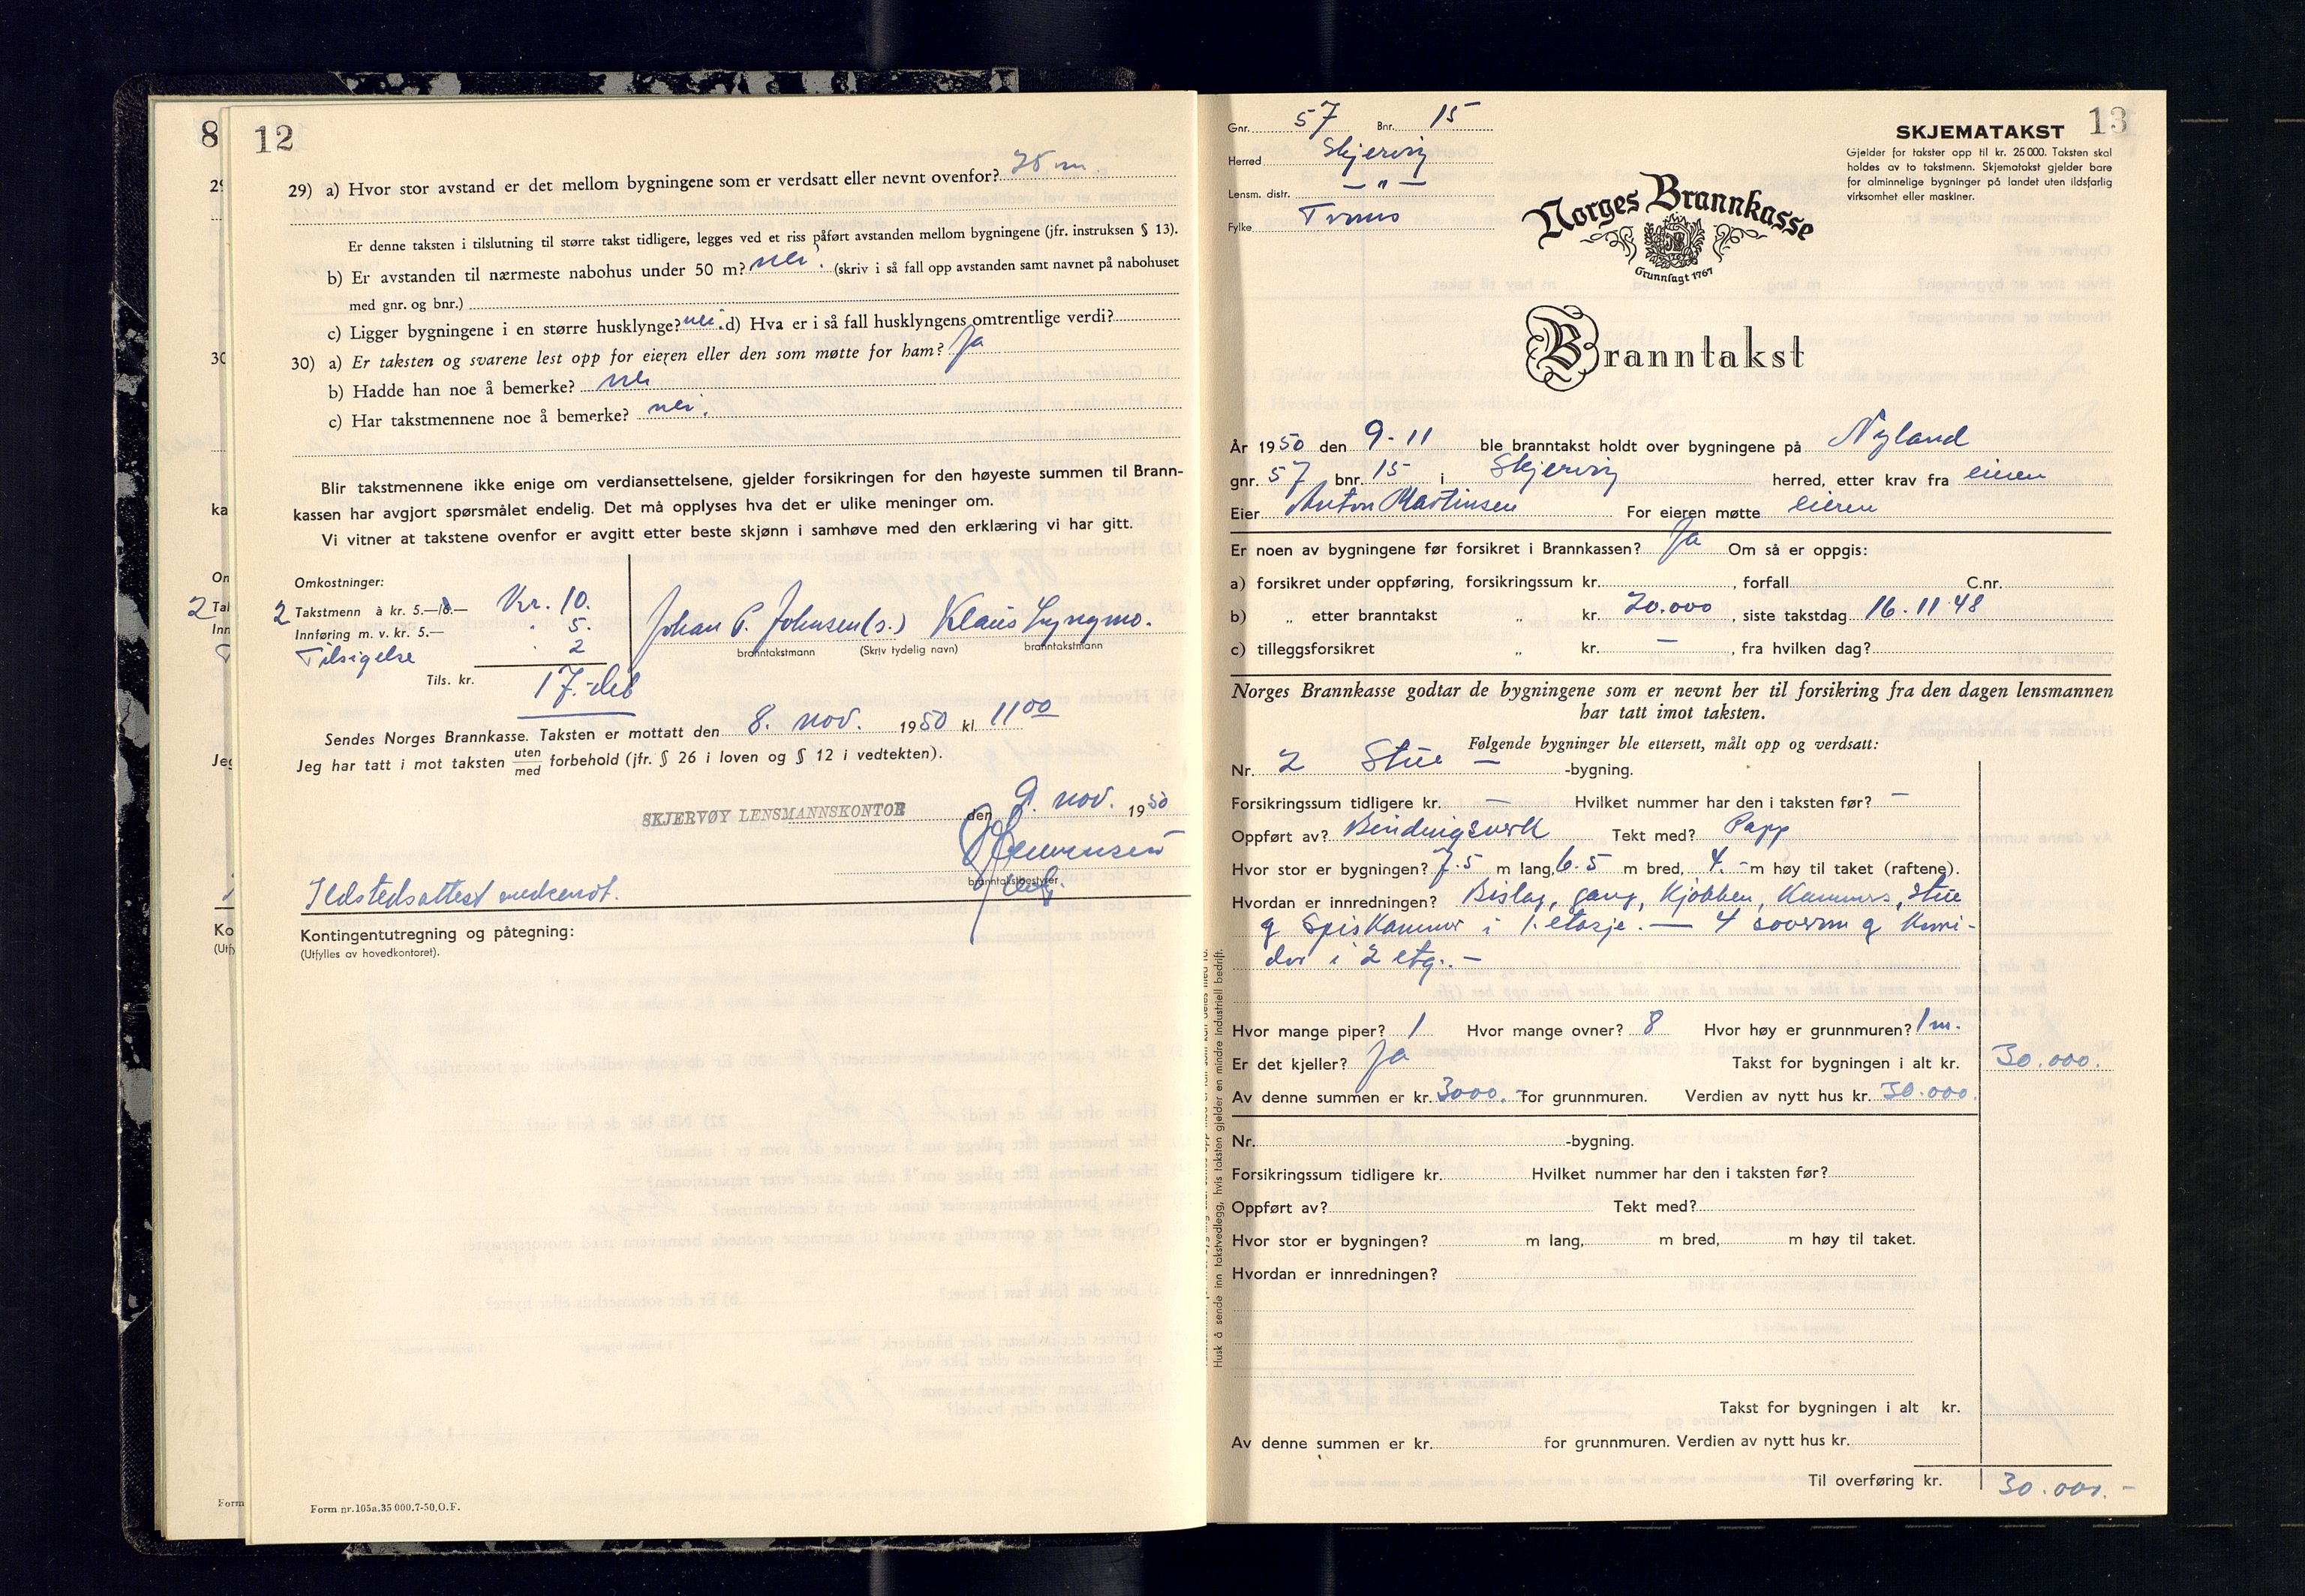 8
12
29) a) Hvor stor avstand er det mellom bygningene som er verdsatt eller nevnt ovenfor? 75 m.
Er denne taksten i tilslutning til større takst tidligere, legges ved et riss påført avstanden mellom bygningene (jfr. instruksen § 13).
b) Er avstanden til nærmeste nabohus under 50 m? nei. (skriv i så fall opp avstanden samt navnet på nabohuset
med gnr. og bnr.)
c) Ligger bygningene i en større husklynge? nei. d) Hva er i så fall husklyngens omtrentlige verdi?
30) a) Er taksten og svarene lest opp for eieren eller den som møtte for ham? Ja
b) Hadde han noe å bemerke? nei
c) Har takstmennene noe å bemerke? nei.
Blir takstmennene ikke enige om verdiansettelsene, gjelder forsikringen for den høyeste summen til Brann-
kassen har avgjort spørsmålet endelig. Det må opplyses hva det er ulike meninger om.
Vi vitner at takstene ovenfor er avgitt etter beste skjønn i samhøve med den erklæring vi har gitt.
Omkostninger:
2 Takstmenn à kr. 5.— Kr. 10.
Innføring m. v. kr. 5.— 5.
Tilsigelse 2
Tils. kr. 17.-
Johan P. Johnsen (s.) Klaus Lyngmo.
branntakstmann (Skriv tydelig navn) branntakstmann
Sendes Norges Brannkasse. Taksten er mottatt den 8. nov. 1950 kl. 11 00
Jeg har tatt i mot taksten uten/med forbehold (jfr. § 26 i loven og § 12 i vedtekten).
SKJERVØY LENSMANNSKONTOR den 9. nov. 1950
branntakstbestyrer
Ildstedsattest vedsendt.
Kontingentutregning og påtegning:
(Utfylles av hovedkontoret).
Form nr. 105a. 35 000. 7-50. O.F.
Husk å sende inn takstvedlegg, hvis taksten gjelder en mindre industriell bedrift.
Gnr. 57 Bnr. 15
Herred Skjervøy
Lensm. distr. — " —
Fylke Troms
SKJEMATAKST 13
Gjelder for takster opp til kr. 25 000. Taksten skal
holdes av to takstmenn. Skjematakst gjelder bare
for alminnelige bygninger på landet uten ildsfarlig
virksomhet eller maskiner.
Norges Brannkasse
Grunnlagt 1767
Branntakst
År 1950 den 9-11 ble branntakst holdt over bygningene på Nyland
gnr. 57 bnr. 15 i Skjervøy herred, etter krav fra eieren
Eier Anton Martinsen For eieren møtte eieren
Er noen av bygningene før forsikret i Brannkassen? Ja Om så er oppgis:
a) forsikret under oppføring, forsikringssum kr. , forfall C.nr.
b) „ etter branntakst „ kr. 20.000 , siste takstdag 16-11-48
c) tilleggsforsikret „ kr. — , fra hvilken dag?
Norges Brannkasse godtar de bygningene som er nevnt her til forsikring fra den dagen lensmannen
har tatt imot taksten.
Følgende bygninger ble ettersett, målt opp og verdsatt:
Nr. 2 Stue — -bygning.
Forsikringssum tidligere kr. — Hvilket nummer har den i taksten før? —
Oppført av? Bindingsverk Tekt med? Papp
Hvor stor er bygningen? 7.5 m lang, 6.5 m bred, 4.- m høy til taket (raftene).
Hvordan er innredningen? Bislag, gang, Kjøkken, Kammers, Stue
og Spiskammer i 1. etasje. — 4 soverum og Kori-
dor i 2 etg. —
Hvor mange piper? 1 Hvor mange ovner? 8 Hvor høy er grunnmuren? 1 m.
Er det kjeller? Ja Takst for bygningen i alt kr. 30.000.
Av denne summen er kr. 3000.- for grunnmuren. Verdien av nytt hus kr. 30.000.
Nr. -bygning.
Forsikringssum tidligere kr. Hvilket nummer har den i taksten før?
Oppført av? Tekt med?
Hvor stor er bygningen? m lang, m bred, m høy til taket.
Hvordan er innredningen?
Takst for bygningen i alt kr.
Av denne summen er kr. for grunnmuren. Verdien av nytt hus kr.
Til overføring kr. 30.000.-